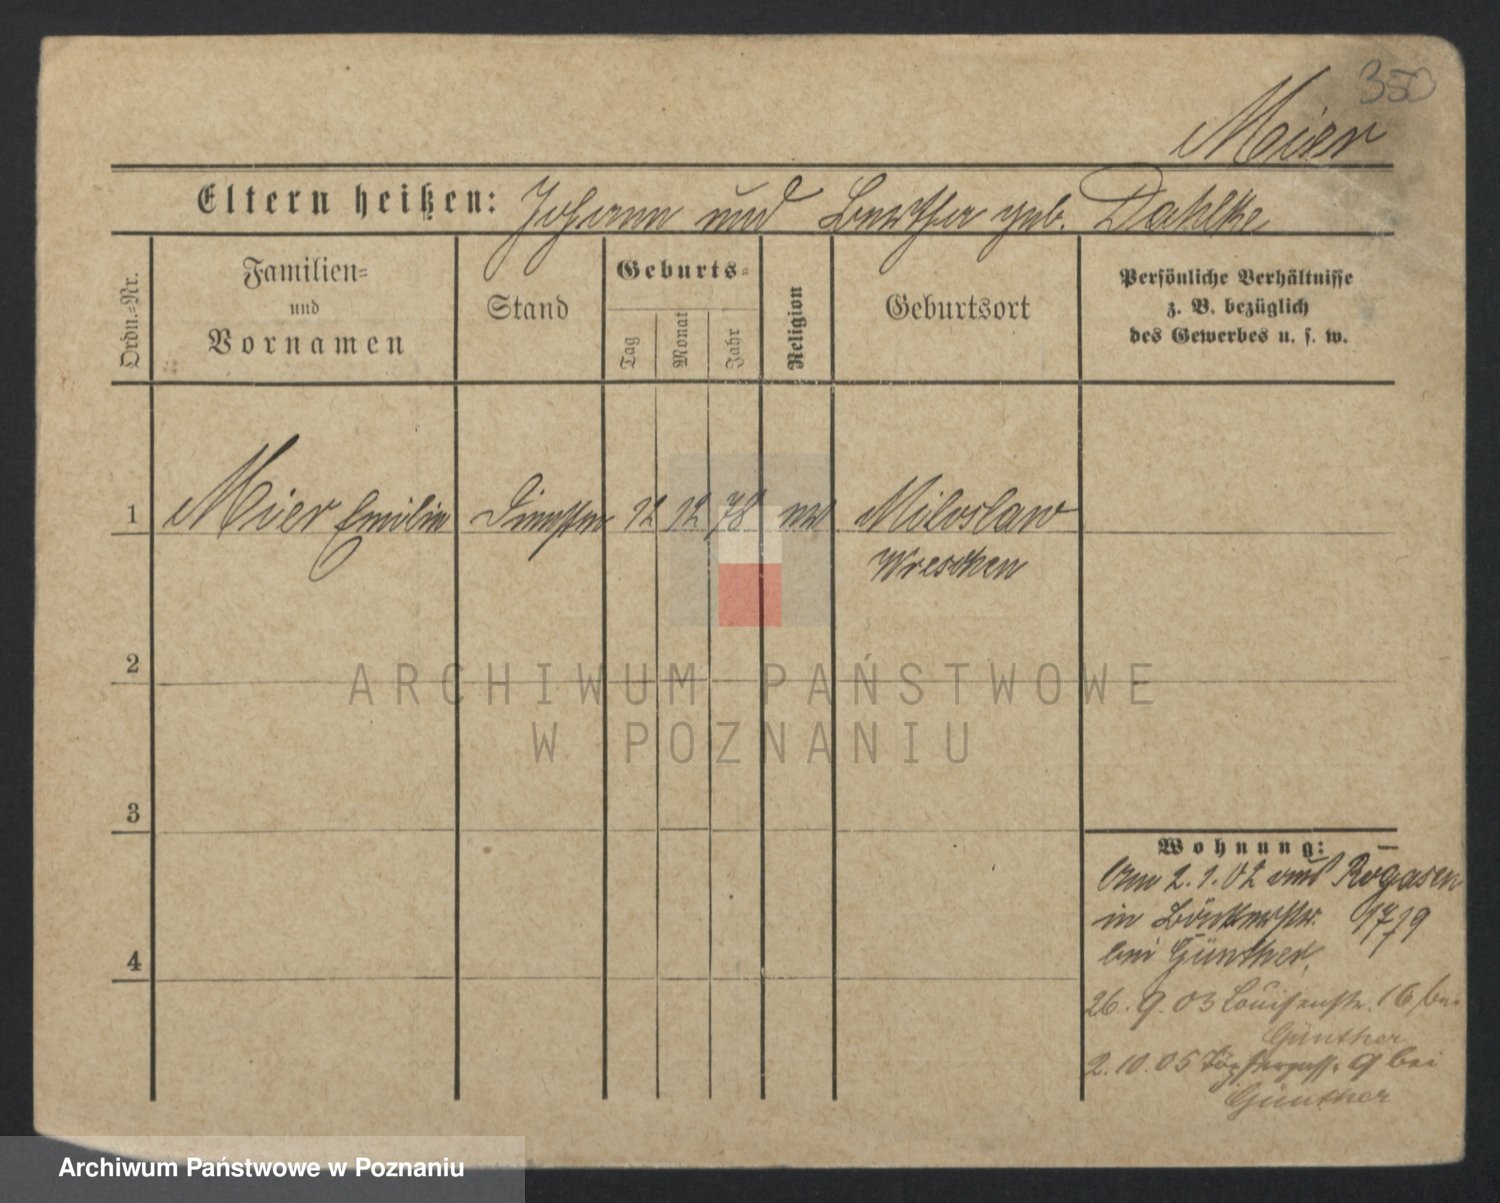 350
Meier
Eltern heißen: Johann und Bertha geb. Dahlke
Ordn.-Nr.
Familien-
und
Vornamen
Stand
Geburts-
Tag
Monat
Jahr
Religion
Geburtsort
Persönliche Verhältnisse
z. B. bezüglich
des Gewerbes u. s. w.
1 Meier Emilie 12 12 78 ev Miloslaw
Wreschen
2
ARCHIWUM PAŃSTWOWE
W POZNANIU
3
4
Wohnung:
Am 2.1.02 aus Rogasen
in 17/19
bei Günther,
26.9.03 Louisenstr. 16 bei
Günther
2.10.05 Töpfergasse 9 bei
Günther
Archiwum Państwowe w Poznaniu